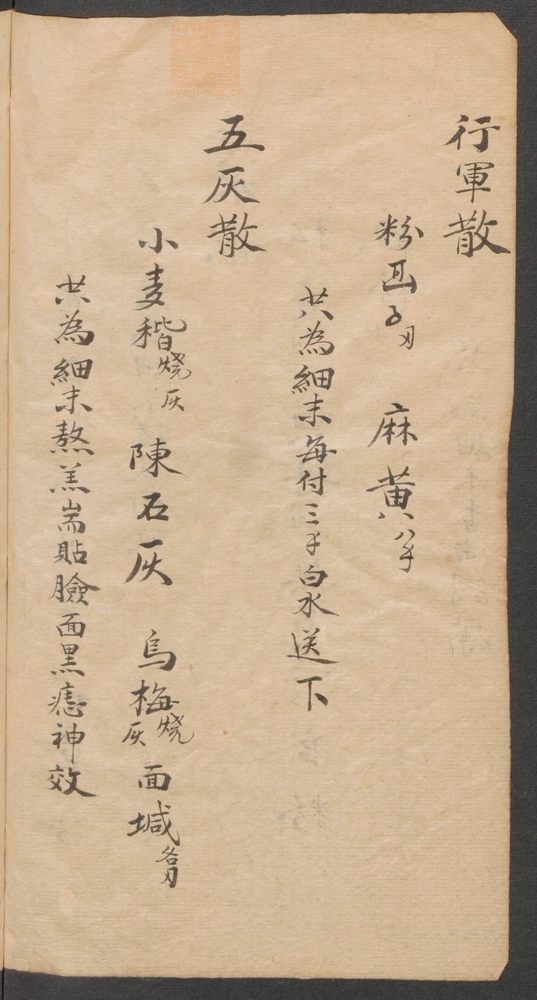 行軍散
粉 麻黄八
共為細末每付三 白水送下
五灰散
小麦稭烧灰 陳石灰 烏梅烧灰 面堿各
共為細末熬羔耑貼臉面黑痣神效